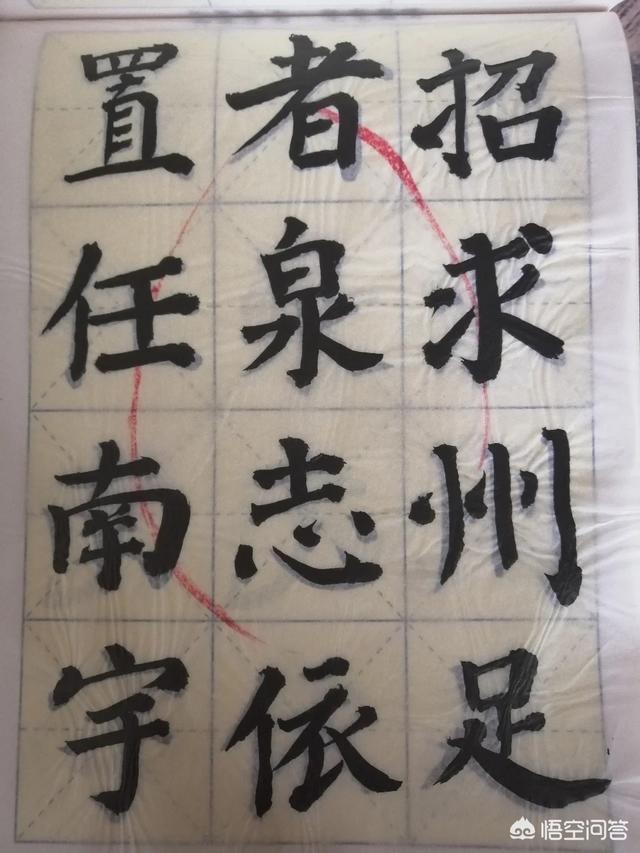 招求州足
者泉志依
置任南宇
悟空问答